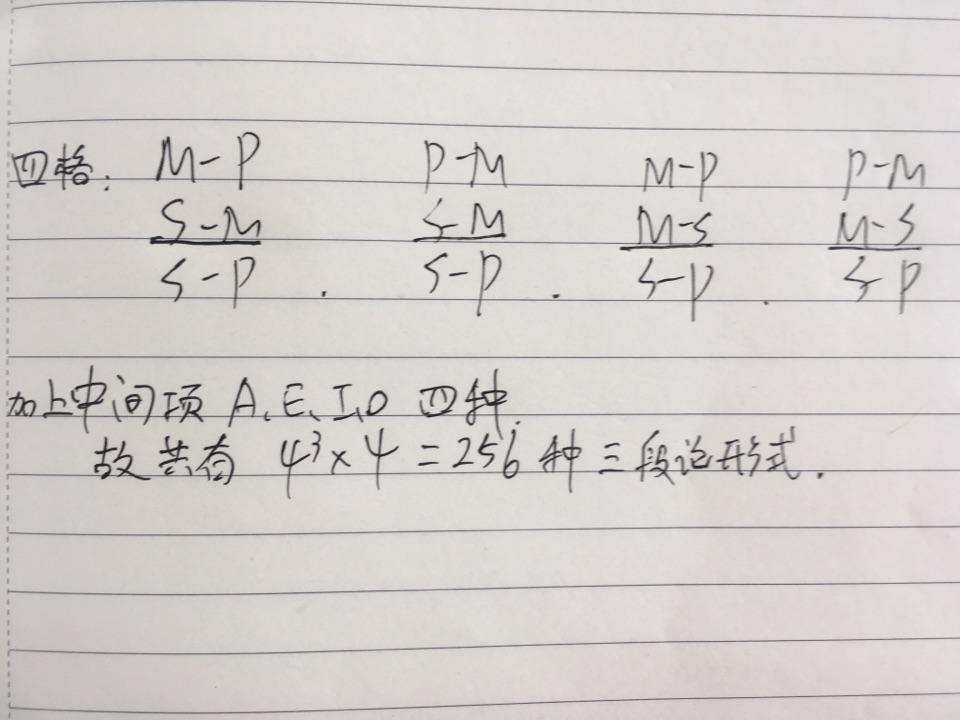 四格: M-P P-M M-P P-M
S-M S-M M-S M-S
S-P . S-P . S-P . S-P
加上中间项 A、E、I、O 四种.
故共有 4³×4=256 种三段论形式.